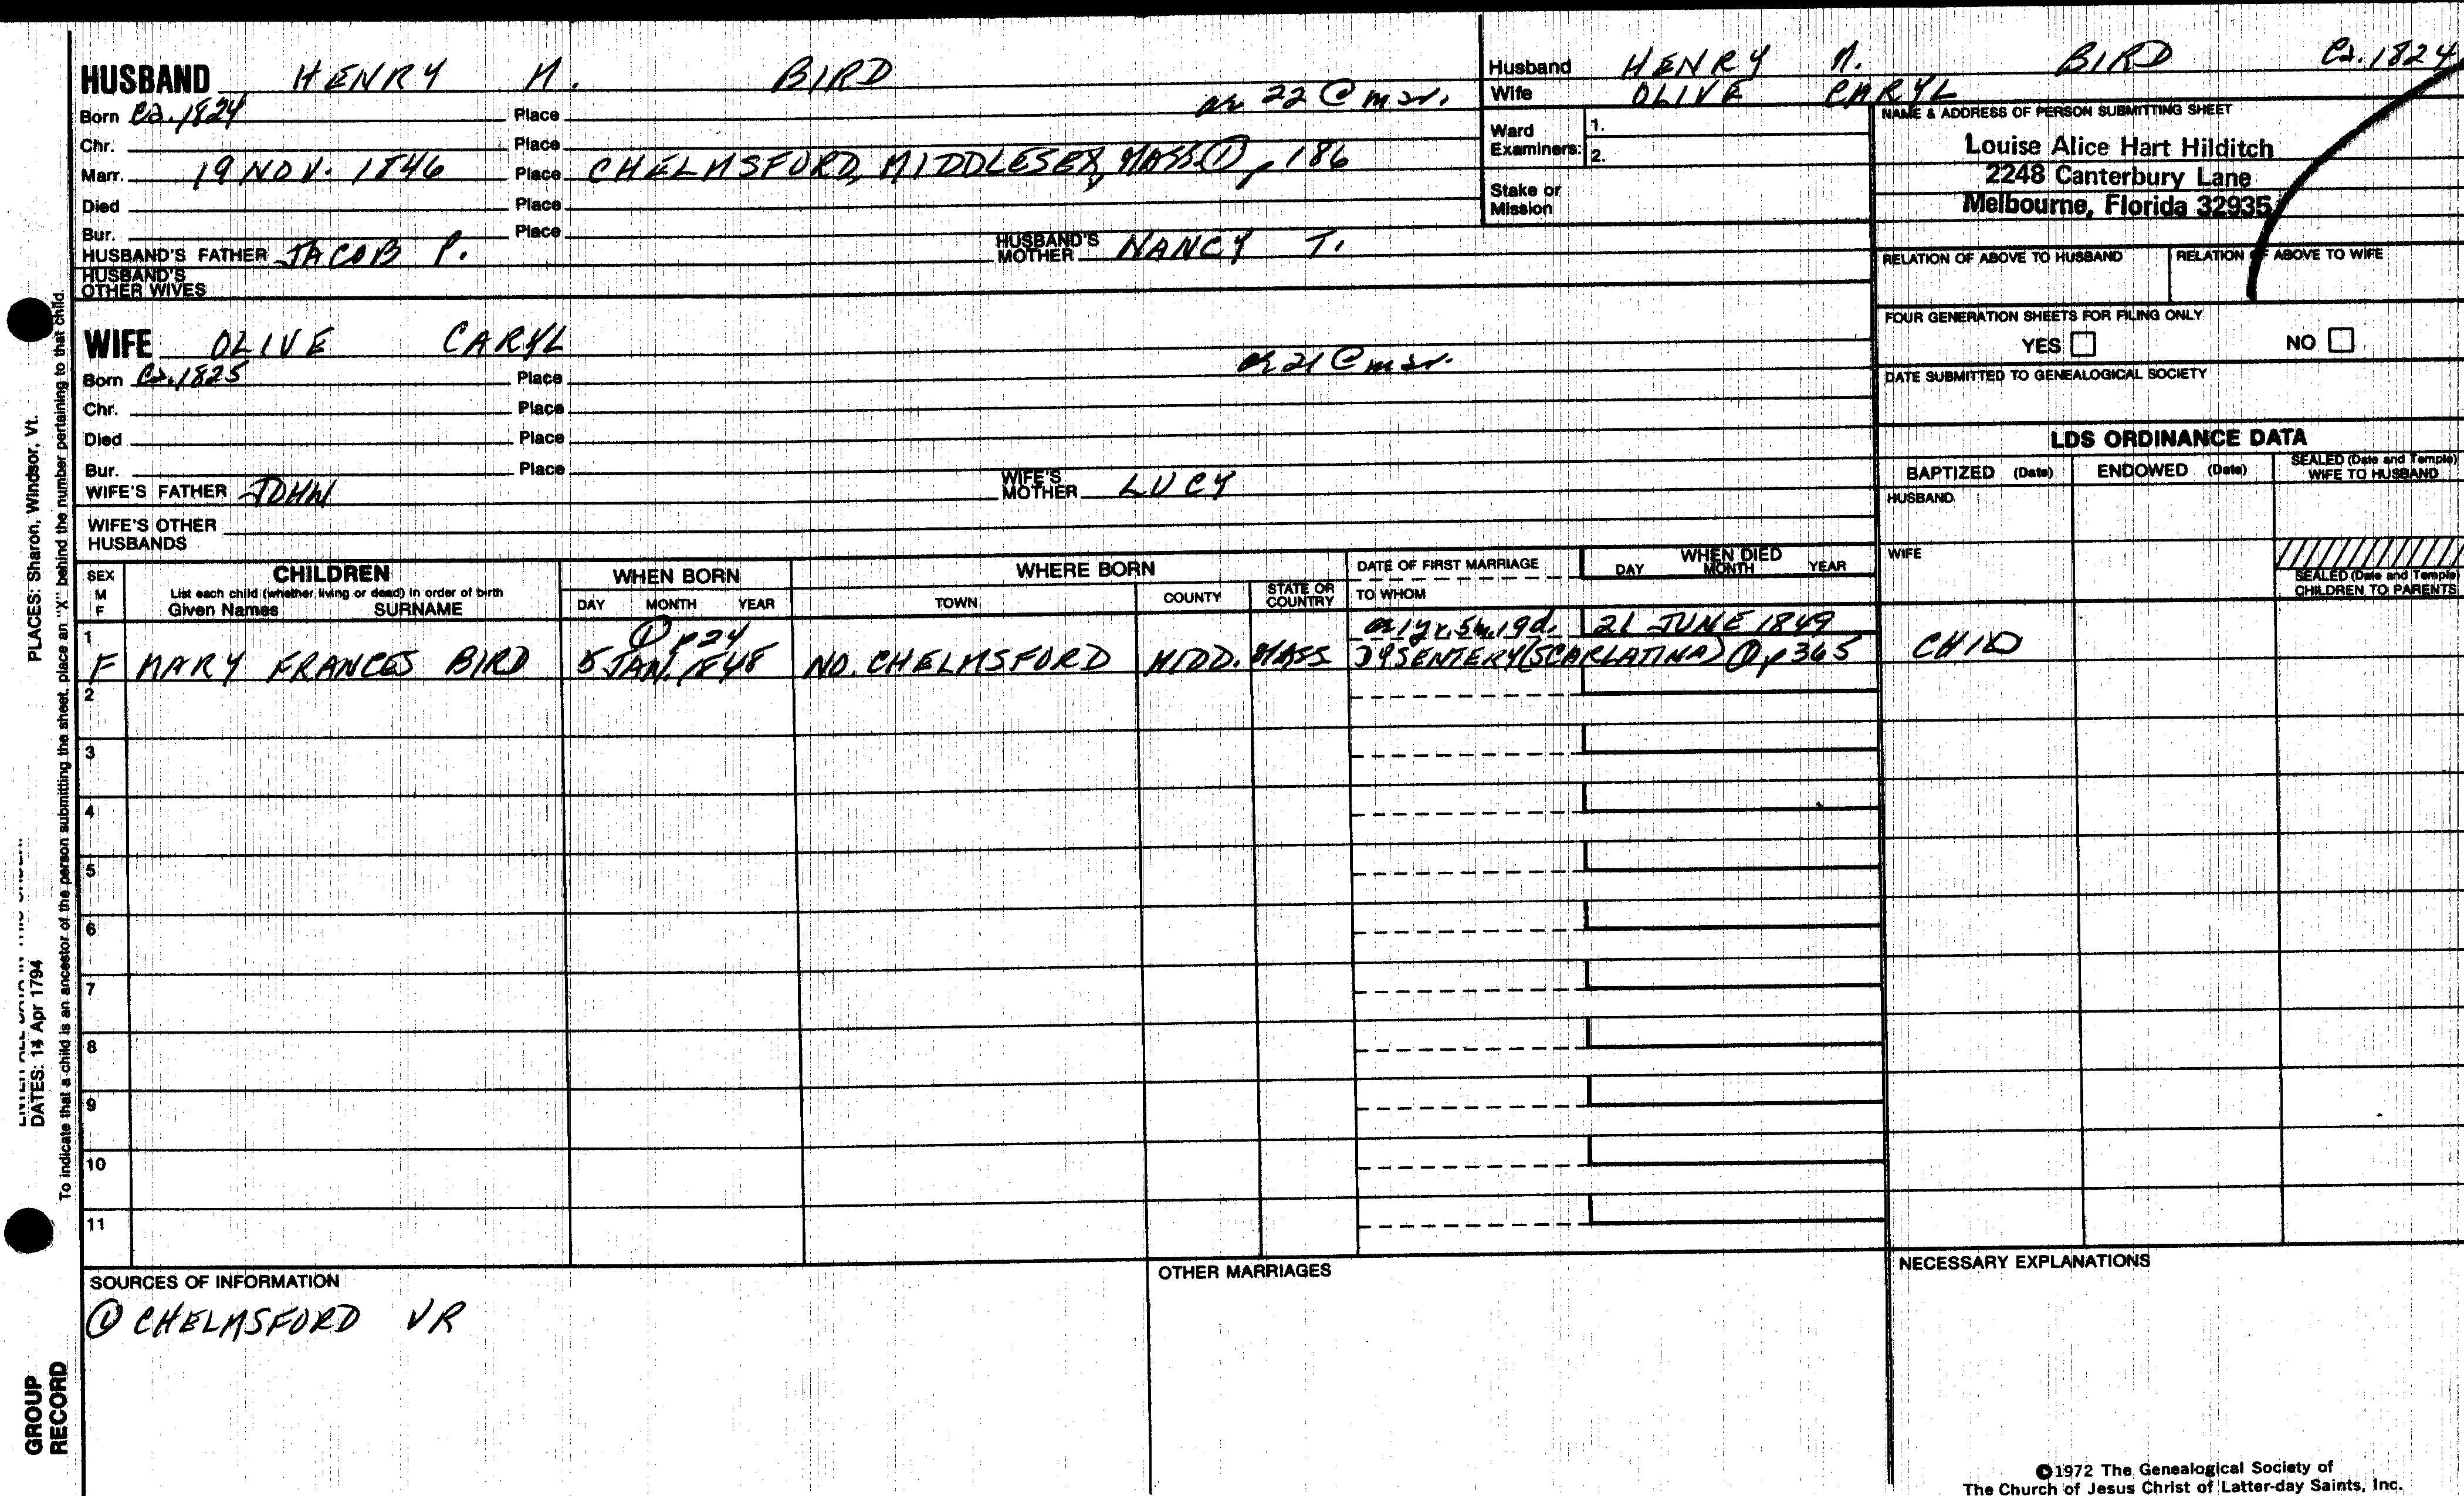 HUSBAND HENRY M. BIRD
Born Ca. 1824 Place ae 22 @ mar.
Chr. Place
Marr. 19 NOV. 1846 Place CHELMSFORD, MIDDLESEX, MASS. ① p 186
Died Place
Bur. Place
HUSBAND'S FATHER JACOB P. HUSBAND'S MOTHER NANCY T.
HUSBAND'S OTHER WIVES
WIFE OLIVE CARYL
Born Ca. 1825 Place ae 21 @ mar.
Chr. Place
Died Place
Bur. Place
WIFE'S FATHER JOHN WIFE'S MOTHER LUCY
WIFE'S OTHER HUSBANDS
Husband HENRY M. BIRD Ca. 1824
Wife OLIVE CARYL
Ward Examiners: 1.
2.
Stake or Mission
NAME & ADDRESS OF PERSON SUBMITTING SHEET
Louise Alice Hart Hilditch
2248 Canterbury Lane
Melbourne, Florida 32935
RELATION OF ABOVE TO HUSBAND RELATION OF ABOVE TO WIFE
FOUR GENERATION SHEETS FOR FILING ONLY
YES NO
DATE SUBMITTED TO GENEALOGICAL SOCIETY
LDS ORDINANCE DATA
BAPTIZED (Date) ENDOWED (Date) SEALED (Date and Temple) WIFE TO HUSBAND
HUSBAND
WIFE
SEALED (Date and Temple) CHILDREN TO PARENTS
SEX M F CHILDREN WHEN BORN WHERE BORN DATE OF FIRST MARRIAGE WHEN DIED
List each child (whether living or dead) in order of birth
Given Names SURNAME DAY MONTH YEAR TOWN COUNTY STATE OR COUNTRY TO WHOM DAY MONTH YEAR
1 ① p 24 ae 1 yr. 5 m. 19 d. 21 JUNE 1849
F MARY FRANCES BIRD 5 JAN. 1848 NO. CHELMSFORD MIDD. MASS DYSENTERY (SCARLATINA) ① p 365 CHILD
2
3
4
5
6
7
8
9
10
11
SOURCES OF INFORMATION
① CHELMSFORD VR
OTHER MARRIAGES
NECESSARY EXPLANATIONS
©1972 The Genealogical Society of
The Church of Jesus Christ of Latter-day Saints, Inc.
PLACES: Sharon, Windsor, Vt.
DATES: 14 Apr 1794
To indicate that a child is an ancestor of the person submitting the sheet, place an "X" behind the number pertaining to that child.
GROUP
RECORD